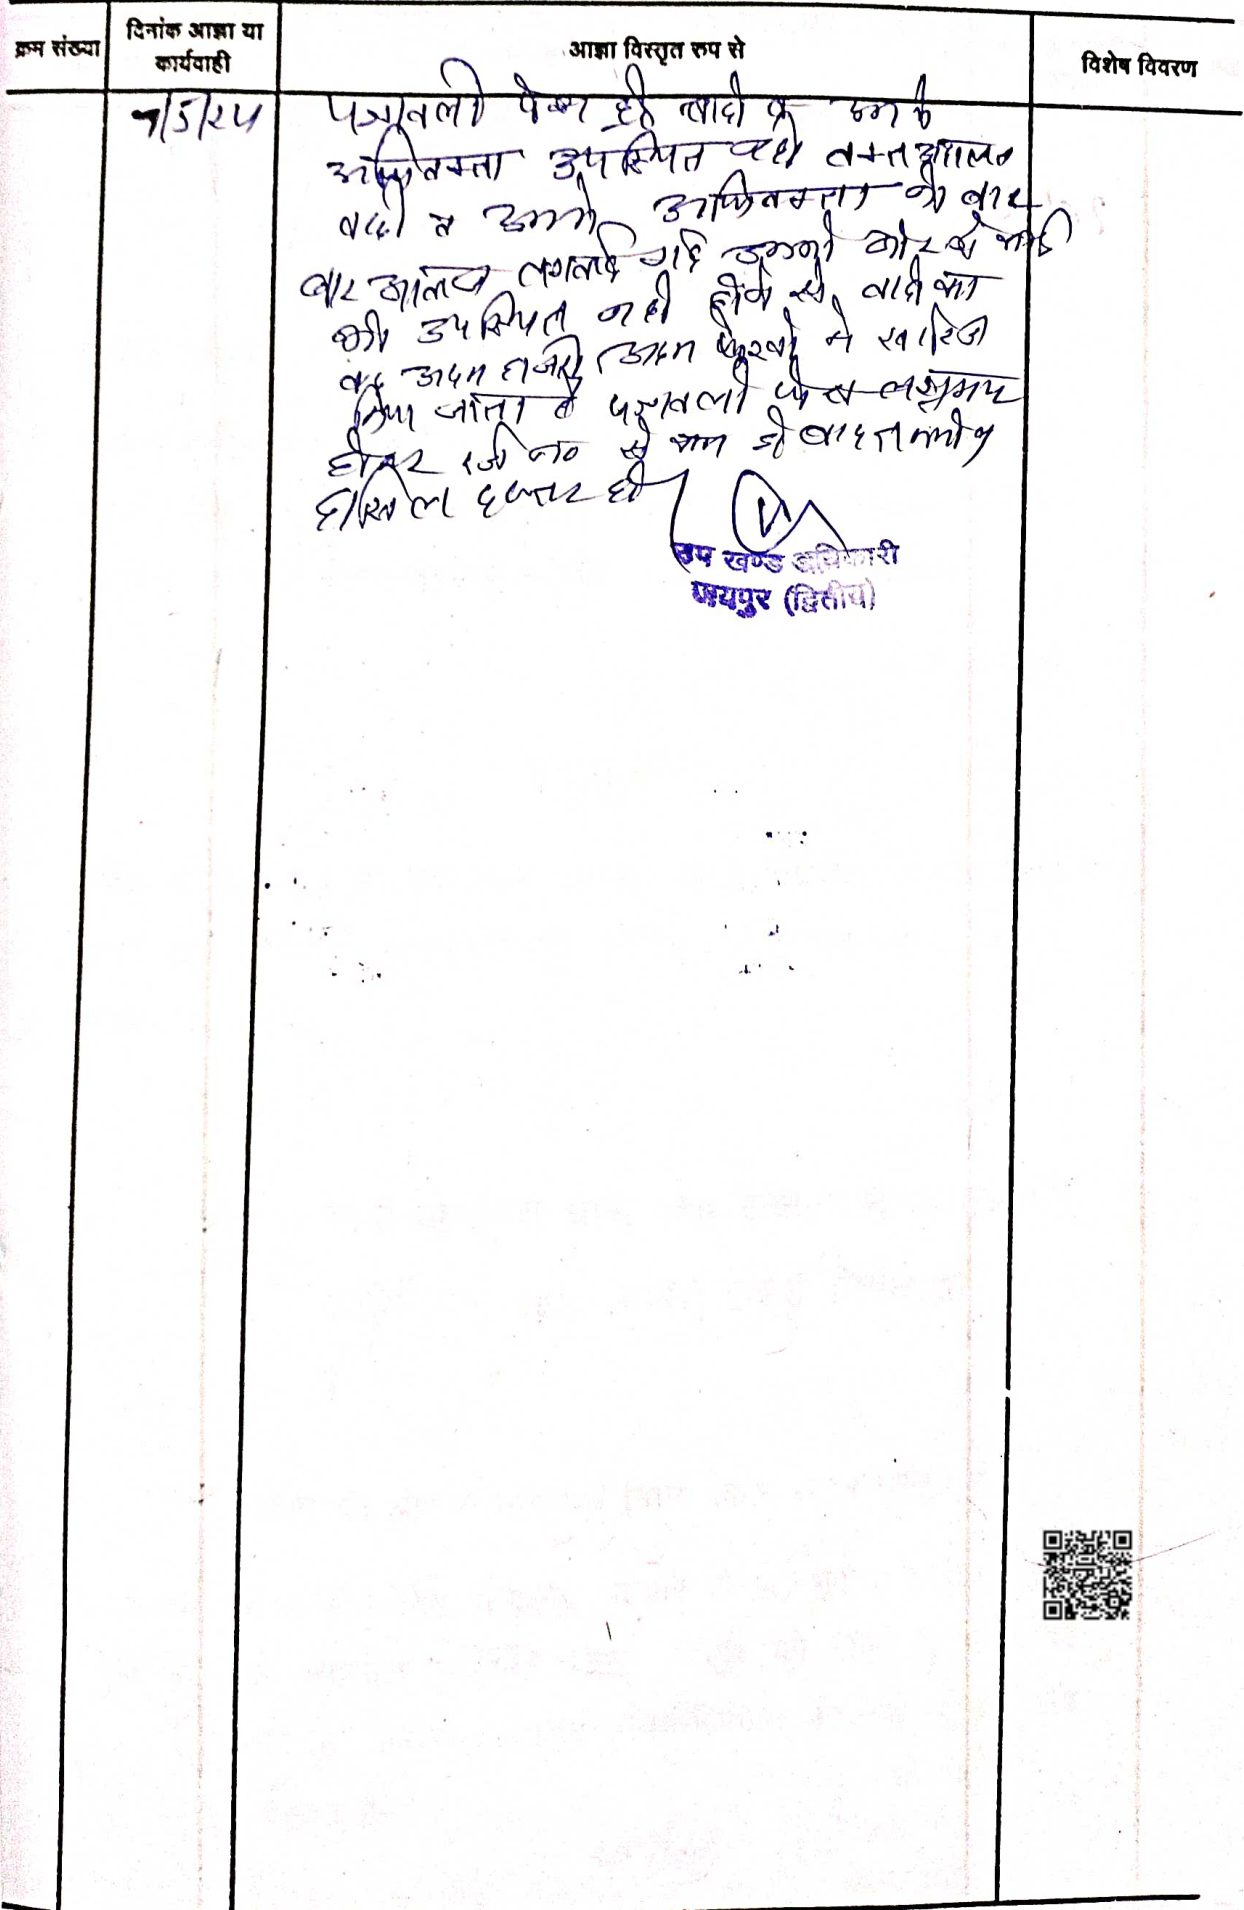 क्रम संख्या
दिनांक आज्ञा या
कार्यवाही
आज्ञा विस्तृत रुप से
विशेष विवरण
7/5/24 पत्रावली पेश हुई वादी व उनके
अभिवक्ता उपस्थित नही वक्त
वादी व उनके अभिवक्ता को बार
बार आवाज लगवाई गई उनकी ओर से कोई
भी उपस्थित नही होने से वादी का
वाद अदम हाजरी अदम पैरवी मे खारिज
किया जाता है पत्रावली फैसल शुमार
होकर नम्बर से कम हो बाद तकमील
दाखिल दफ्तर हो
उप खण्ड अधिकारी
जयपुर (द्वितीय)